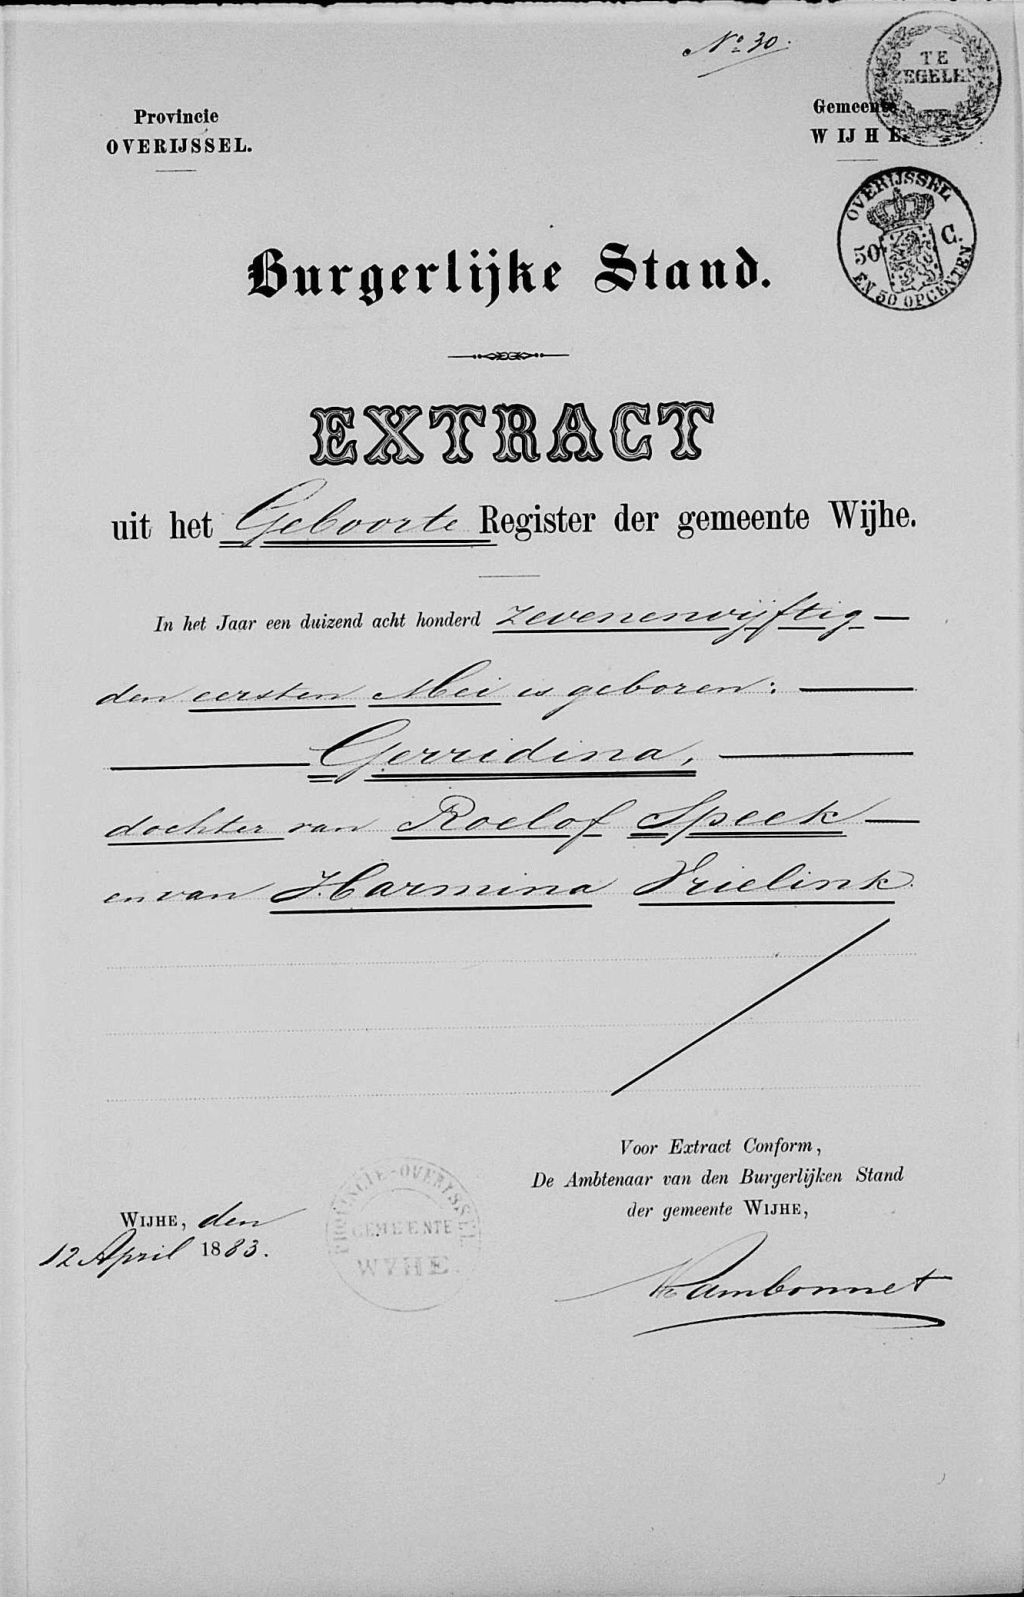 No. 30.
TE
ZEGELEN
Provincie
OVERIJSSEL.
Gemeente
WIJHE.
OVERIJSSEL
50 C.
EN 50 OPCENTEN
Burgerlijke Stand.
EXTRACT
uit het Geboorte Register der gemeente Wijhe.
In het Jaar een duizend acht honderd zevenenvijftig
den eersten Mei is geboren:
Gerridina,
dochter van Roelof Speek
en van Harmina Vrielink.
Voor Extract Conform,
De Ambtenaar van den Burgerlijken Stand
der gemeente WIJHE,
WIJHE, den
12 April 1883.
PROVINCIE-OVERIJSSEL
GEMEENTE
WYHE.